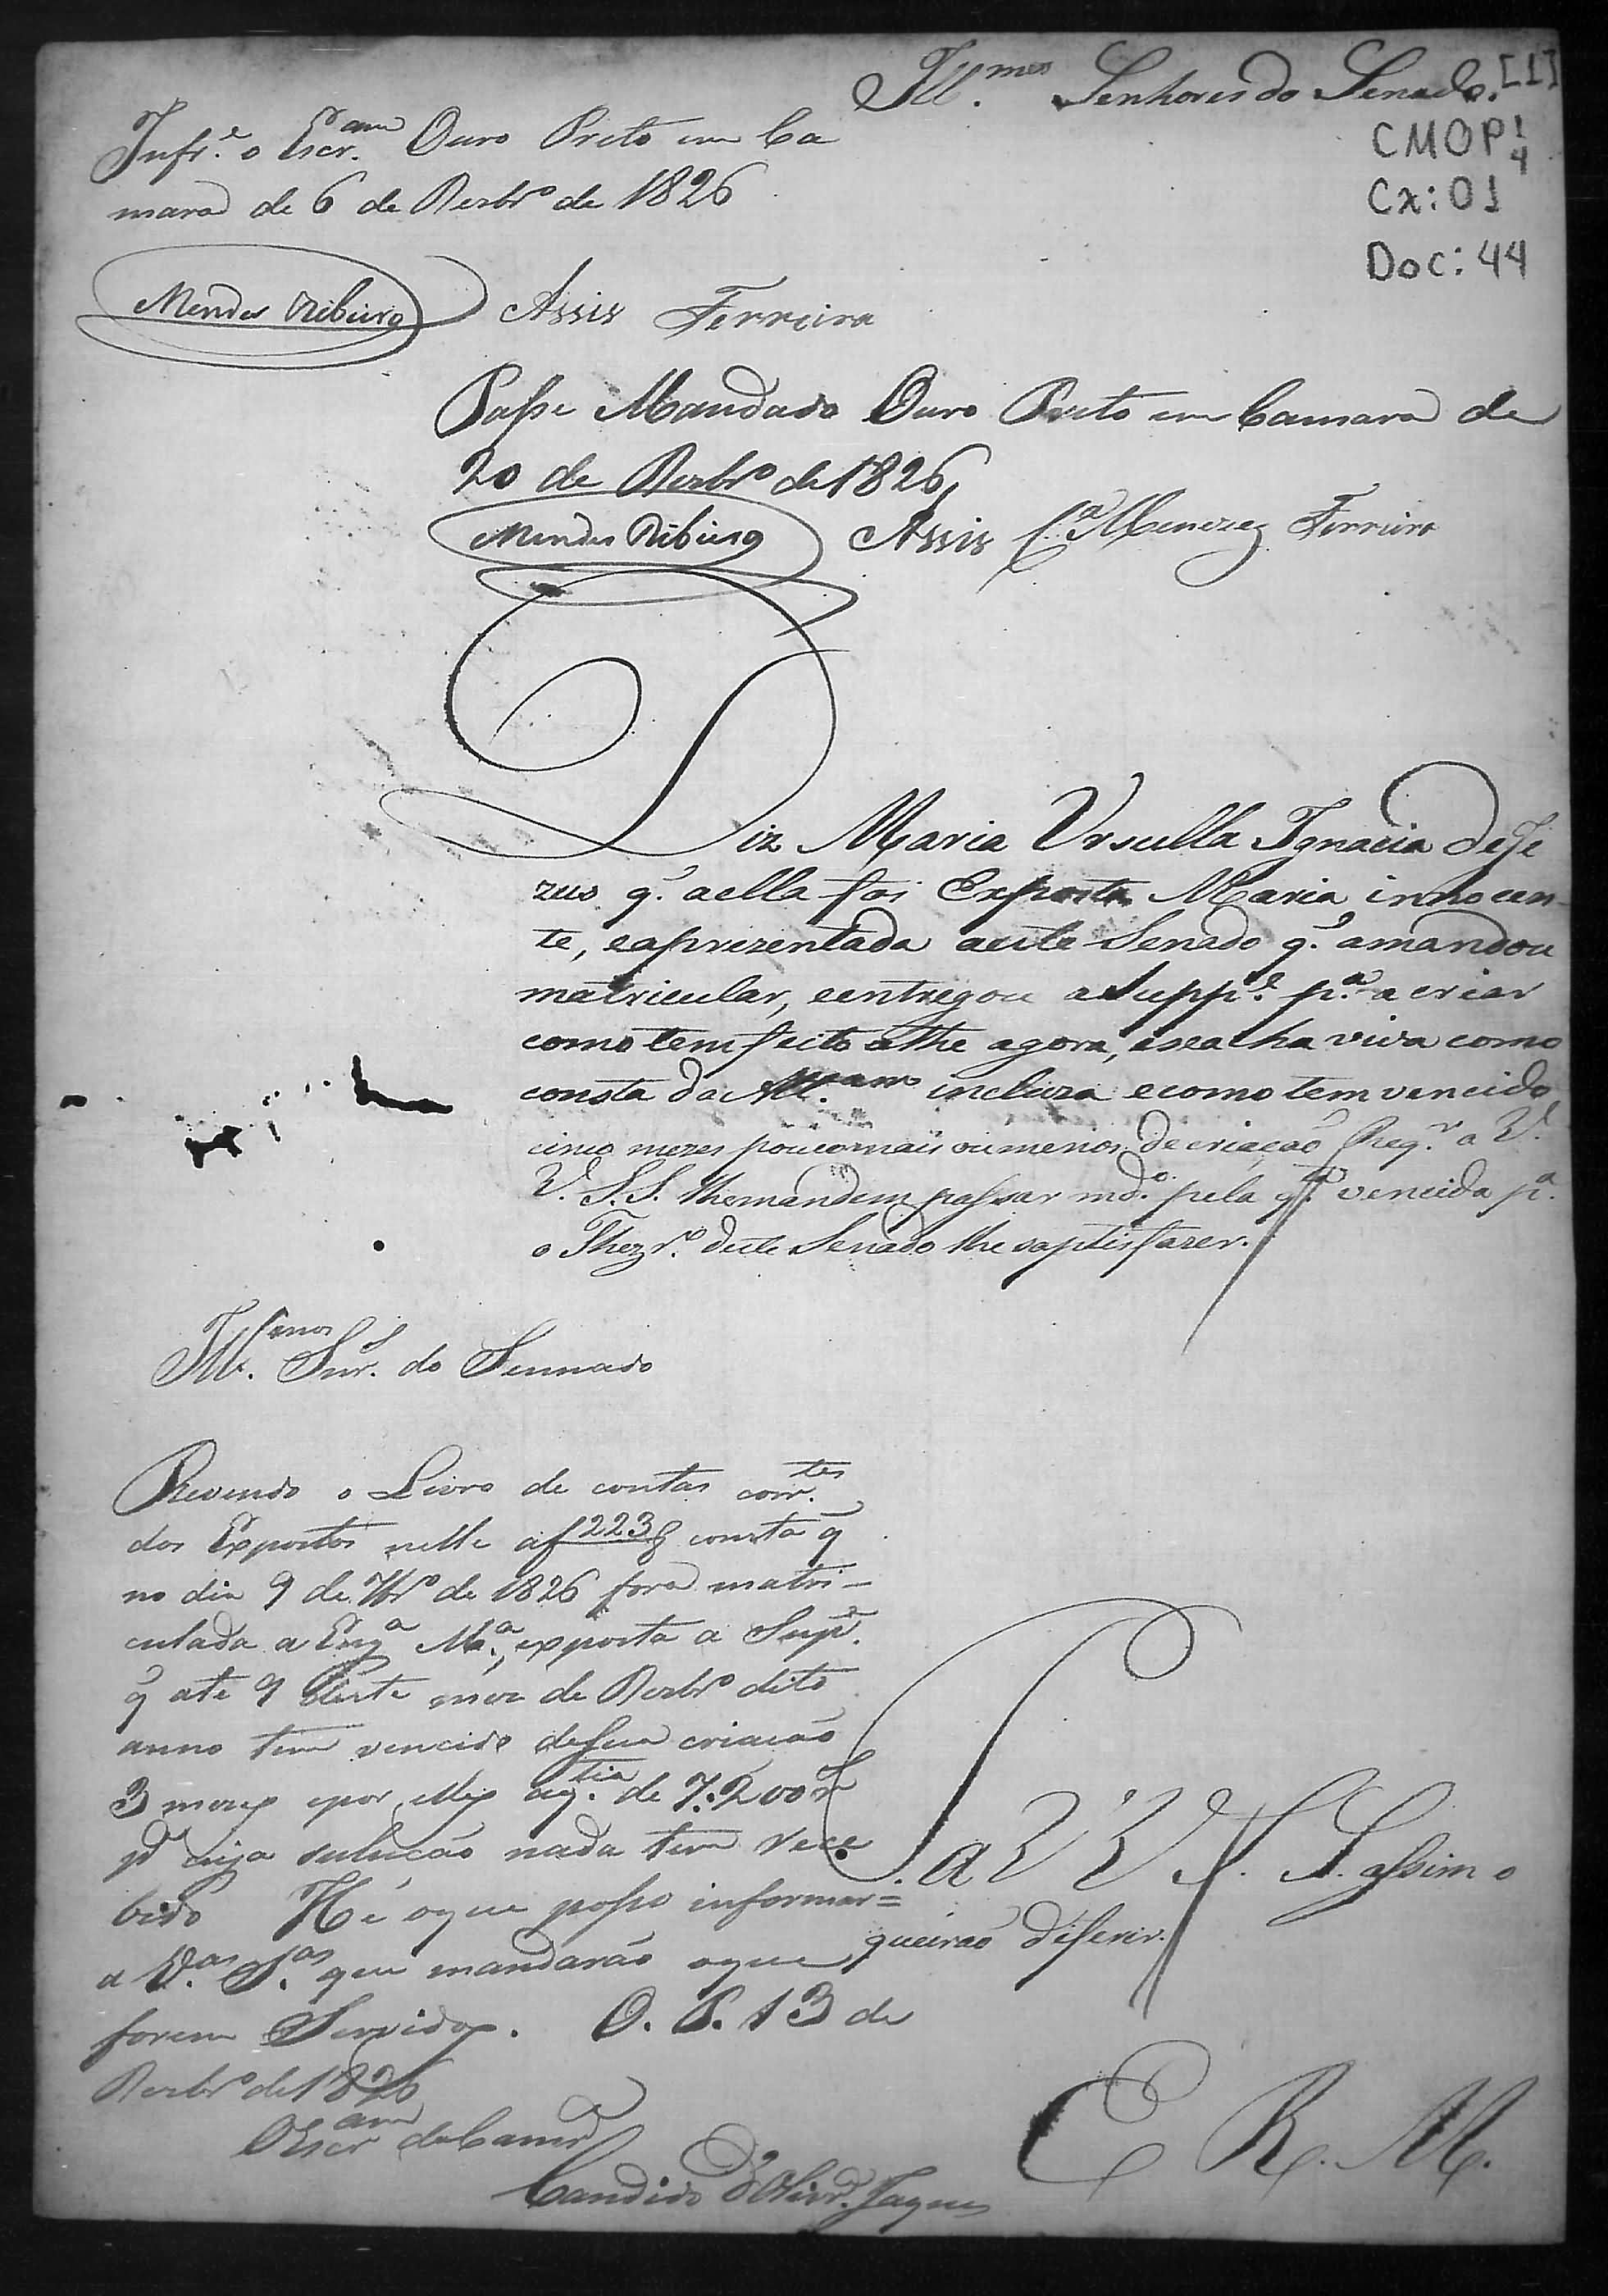 Ill.mos Senhores do Senado.
[1]
CMOP 1/4
Cx: 01
Doc: 44
Infr.e o Escr.am Ouro Preto em Ca
mara de 6 de Dezbr.o de 1826
Mendes Ribeiro Assis Ferreira
Passe Mandado Ouro Preto em Camara de
20 de Dezbr.o de 1826,
Mendes Ribeiro Assis C.a Menezes Ferreira
Diz Maria Ursulla Ignacia de Je
zus q.' aella foi Exposta Maria innocen-
te, eaprezentada aeste Senado q.' amandou
matricular, eentregou a Supp.e p.a a criar
como tem feito athe agora, eseacha viva como
consta da Att.am incluza ecomo tem vencido
cinco mezes poucomais ou menos de criação Req.r a V.
V. S.S. lhemandem passar md.o pela q.tia vencida p.a
o Thezr.o deste Senado lhe saptisfazer.
Ill.mos Snr.s do Sennado
Revendo o Livro de contas corr.tes
dos Expostos nelle af 223 consta q̃
no dia 9 de 7br.o de 1826 fora matri-
culada a Eng.a M.a, exposta a Sup.e
q̃ até 9 deste mez de Dezbr.o dito
anno tem vencido desua criação
3 mezes epor elles aq.tia de 7:200 r.s
p.a cuja solução nada tem rece
bido Hé oque posso informar=
a V.as S.as que mandarão oque
forem Servidos. O. P. 13 de
Dezbr.o de 1826
O Escr.am da Camr.a
Candido d'Olivr.a Jaques
P. a V V. S. S. assim o
queirão diferir.
E. R. M.